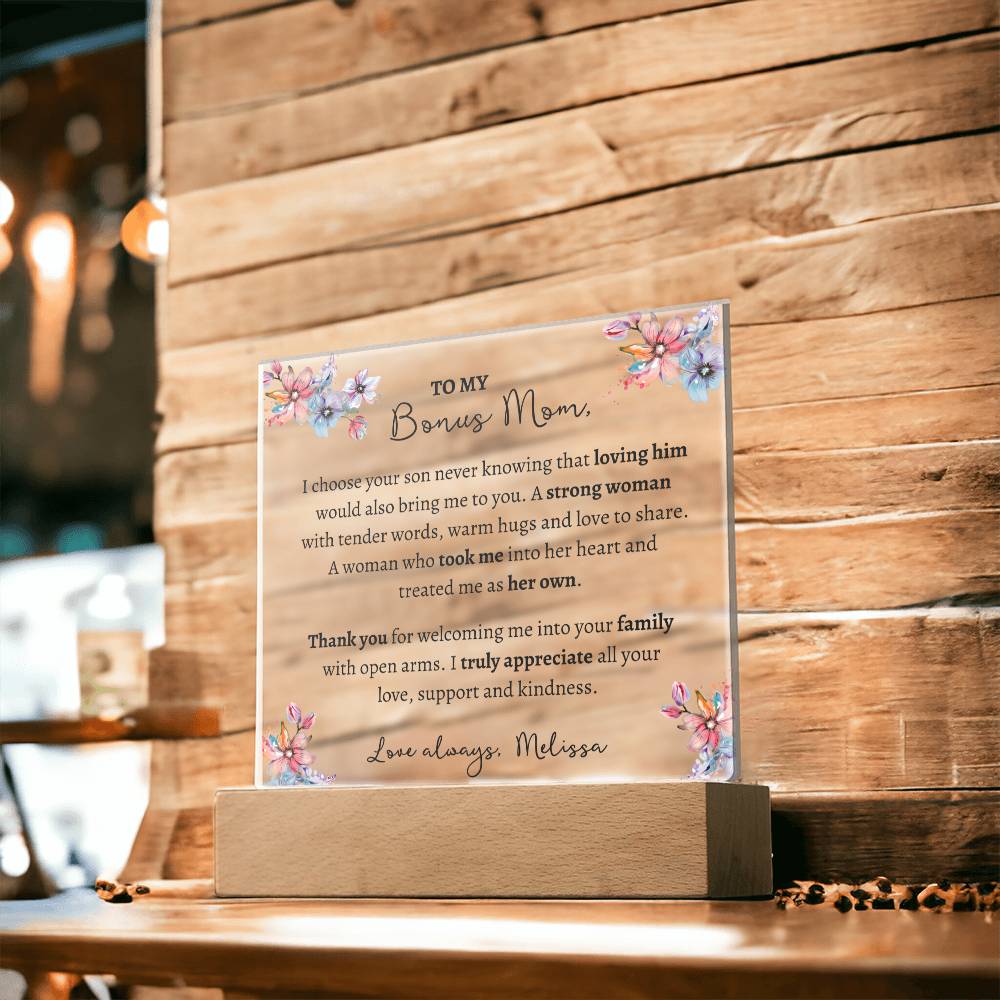 TO MY
Bonus Mom,
I choose your son never knowing that loving him
would also bring me to you. A strong woman
with tender words, warm hugs and love to share.
A woman who took me into her heart and
treated me as her own.
Thank you for welcoming me into your family
with open arms. I truly appreciate all your
love, support and kindness.
Love always, Melissa